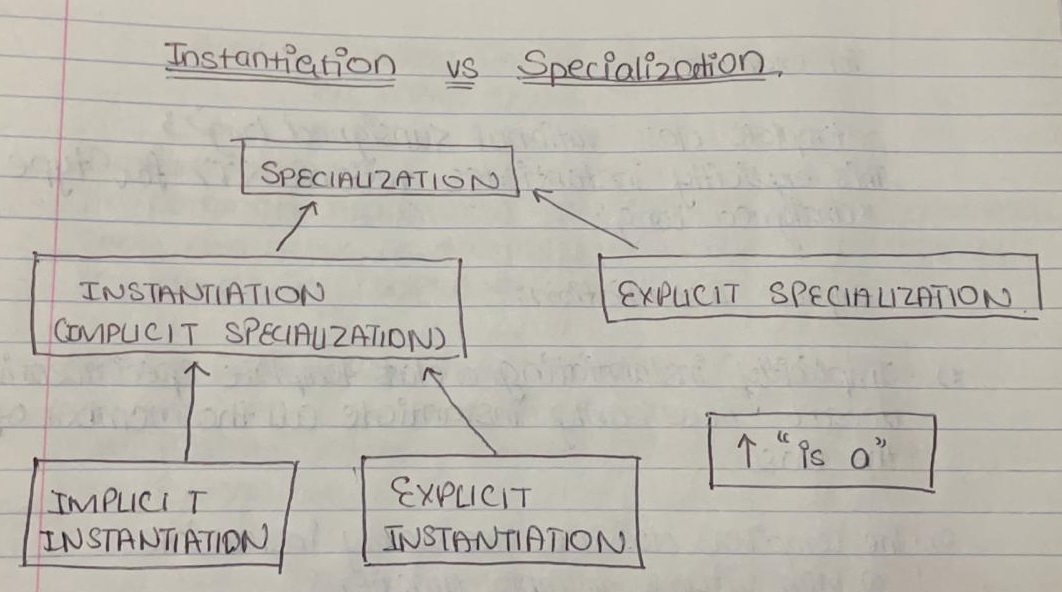 Instantiation vs Specialization.
SPECIALIZATION
INSTANTIATION
(IMPLICIT SPECIALIZATION)
EXPLICIT SPECIALIZATION
↑ “is a”
IMPLICIT
INSTANTIATION
EXPLICIT
INSTANTIATION